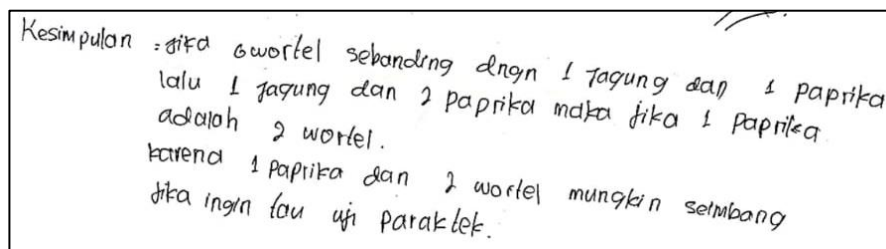 Kesimpulan : jika 6 wortel sebanding dngn 1 jagung dan 1 paprika
lalu 1 jagung dan 2 paprika maka jika 1 paprika
adalah 2 wortel.
karena 1 paprika dan 2 wortel mungkin seimbang
jika ingin tau uji paraktek.